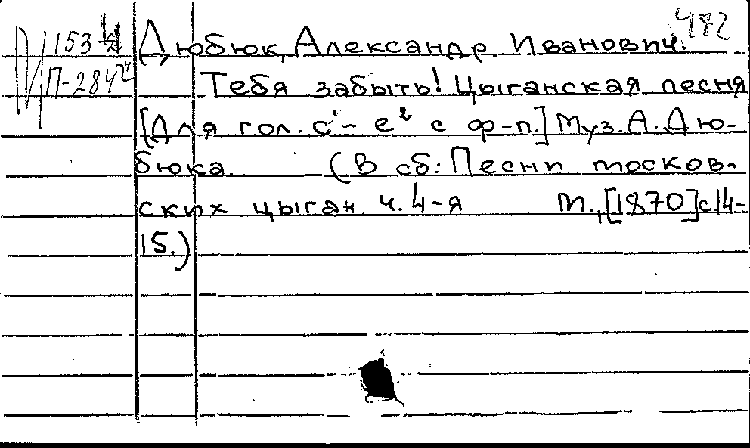 482
153 Дюбюк, Александр Иванович.
П-284 Тебя забыть! Цыганская песня
[Для гол. c¹ - e² с ф-п.] Муз. А. Дю-
бюка. (В сб: Песни москов-
ских цыган. ч. 4-я М., [1870] с 14-
15.)